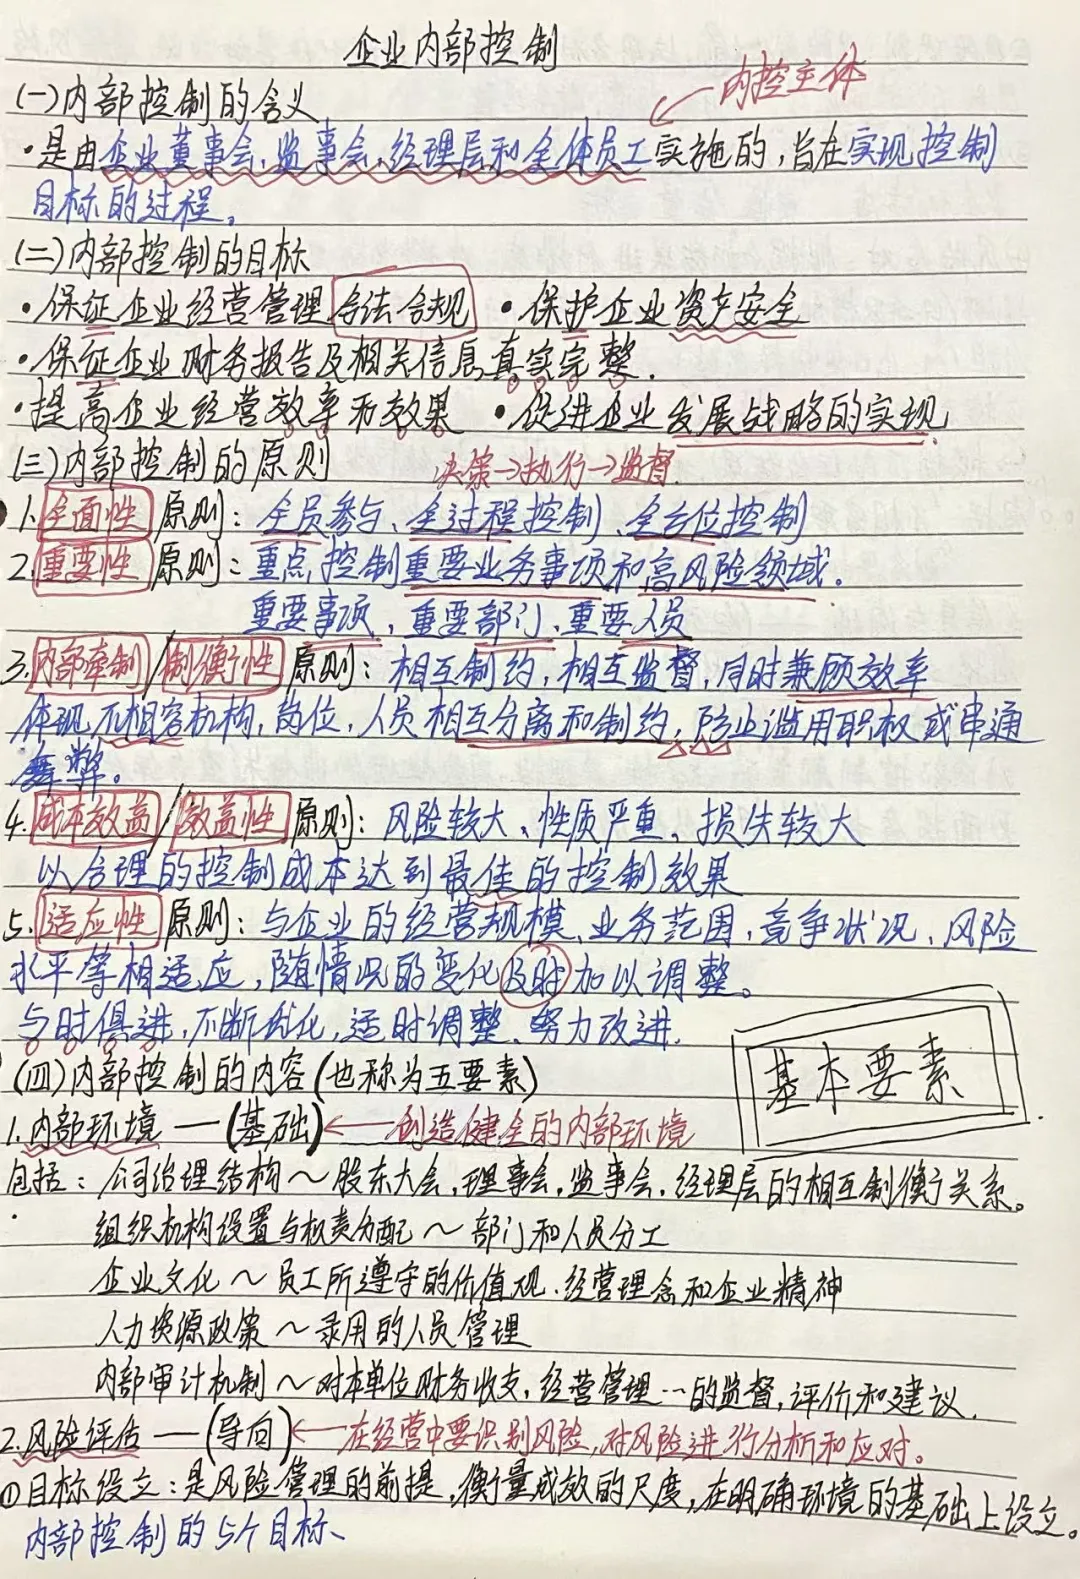 企业内部控制
(一)内部控制的含义
内控主体
·是由企业董事会、监事会、经理层和全体员工实施的，旨在实现控制
目标的过程。
(二)内部控制的目标
·保证企业经营管理合法合规 ·保护企业资产安全
·保证企业财务报告及相关信息真实完整.
·提高企业经营效率和效果 ·促进企业发展战略的实现
(三)内部控制的原则 决策→执行→监督.
1.全面性原则：全员参与、全过程控制、全台位控制
2.重要性原则：重点控制重要业务事项和高风险领域.
重要事项，重要部门、重要人员
3.内部牵制/制衡性原则：相互制约，相互监督，同时兼顾效率
体现不相容机构，岗位，人员相互分离和制约，防止滥用职权或串通
舞弊。
4.成本效益/效益性原则：风险较大、性质严重、损失较大
以合理的控制成本达到最佳的控制效果
5.适应性原则：与企业的经营规模、业务范围，竞争状况、风险
水平等相适应，随情况的变化及时加以调整。
与时俱进，不断优化，适时调整、努力改进.
(四)内部控制的内容(也称为五要素)
基本要素
1.内部环境 —(基础)←创造健全的内部环境
包括：公司治理结构～股东大会，理事会，监事会，经理层的相互制衡关系。
组织机构设置与权责分配～部门和人员分工
企业文化～员工所遵守的价值观、经营理念和企业精神
人力资源政策～录用的人员管理
内部审计机制～对本单位财务收支，经营管理…的监督，评价和建议.
2.风险评估 —(导向)←在经营中要识别风险，对风险进行分析和应对。
①目标设立：是风险管理的前提，衡量成效的尺度，在明确环境的基础上设立。
内部控制的5个目标、